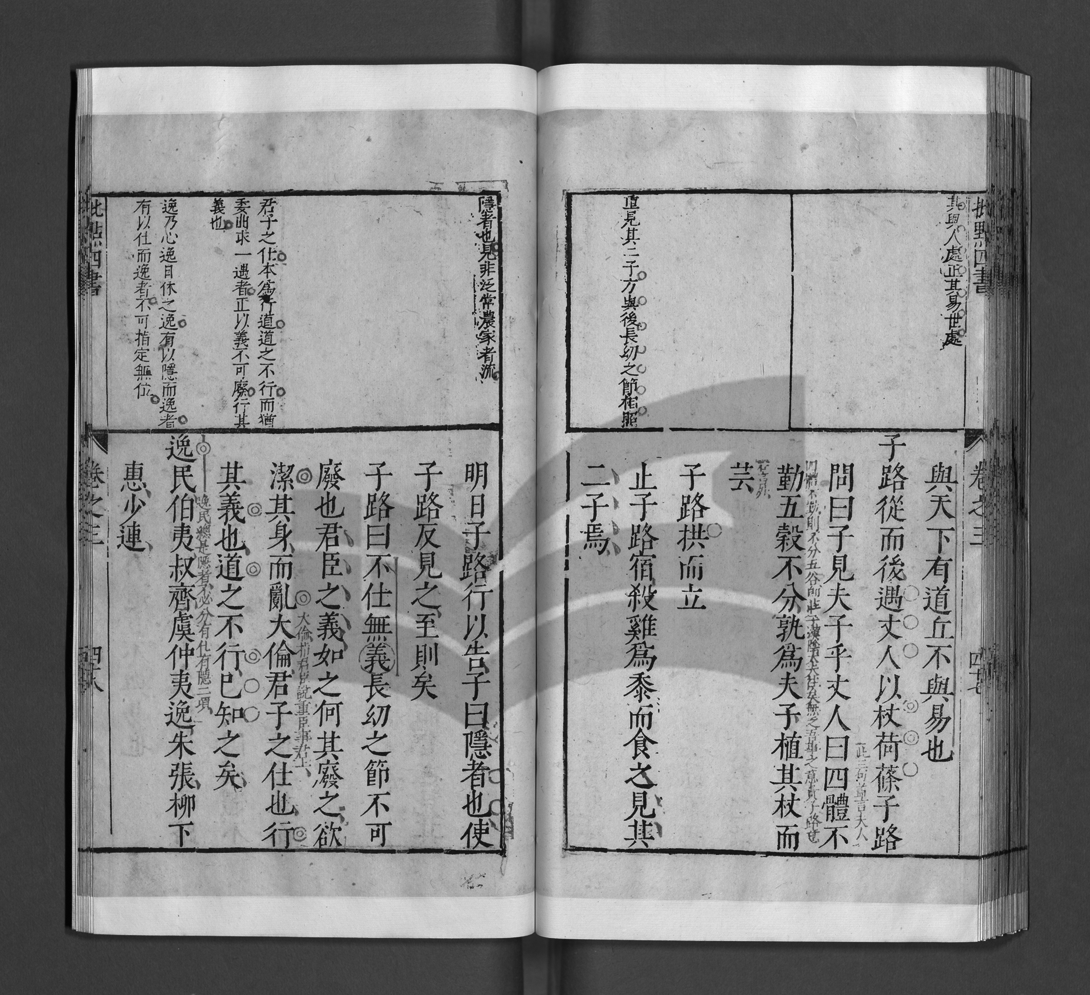 批點四書
卷之三
其與人處正其易世處
直見其二子方與後長幼之節相照
與天下有道丘不與易也
子路從而後遇丈人以杖荷蓧子路
問曰子見夫子乎丈人曰四體不
勤五穀不分孰爲夫子植其杖而
芸
子路拱而立
止子路宿殺雞爲黍而食之見其
二子焉
隱者也見非泛常農家者流
君子之仕本爲行道道之不行而猶
委曲求一遇者正以義不可廢行其
義也
逸乃心逸日休之逸有以隱而逸者
有以仕而逸者不可指定無位
明日子路行以告子曰隱者也使
子路反見之至則行矣
子路曰不仕無義長幼之節不可
廢也君臣之義如之何其廢之欲
潔其身而亂大倫君子之仕也行
其義也道之不行已知之矣
逸民伯夷叔齊虞仲夷逸朱張柳下
逸民總是隱者不必分有仕有隱二項
惠少連
批點四書
卷之三
四十八